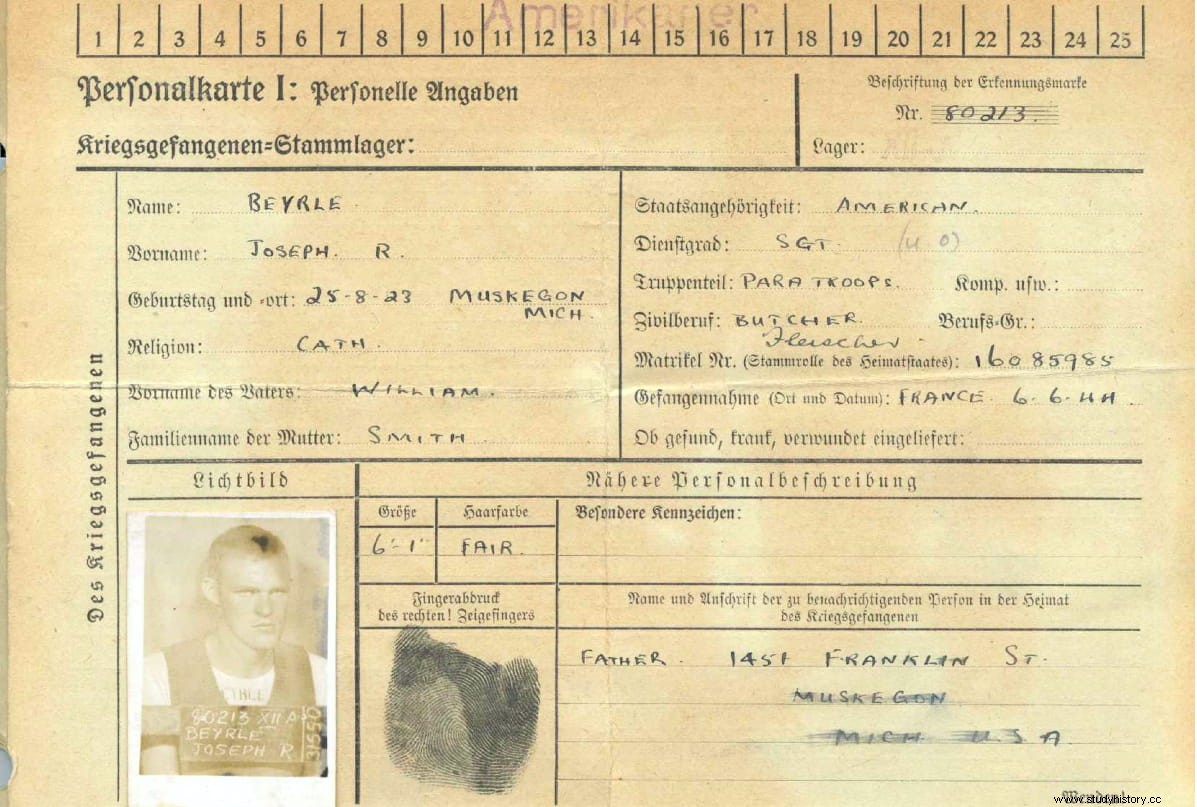 Amerikaner
1 2 3 4 5 6 7 8 9 10 11 12 13 14 15 16 17 18 19 20 21 22 23 24 25
Personalkarte I: Personelle Angaben
Beschriftung der Erkennungsmarke
Nr. 80213.
Kriegsgefangenen=Stammlager:
Lager:
Des Kriegsgefangenen
Name: BEYRLE
Staatsangehörigkeit: AMERICAN.
Vorname: JOSEPH. R.
Dienstgrad: SGT. (U O)
Geburtstag und =ort: 25-8-23 MUSKEGON
MICH.
Truppenteil: PARATROOPS. Komp. usw.:
Religion: CATH.
Zivilberuf: BUTCHER. Berufs=Gr.:
Fleischer
Matrikel Nr. (Stammrolle des Heimatstaates): 16085985
Vorname des Vaters: WILLIAM.
Gefangennahme (Ort und Datum): FRANCE 6-6-44.
Familienname der Mutter: SMITH.
Ob gesund, krank, verwundet eingeliefert:
Lichtbild
Nähere Personalbeschreibung
Größe
Haarfarbe
Besondere Kennzeichen:
6'-1"
FAIR.
Fingerabdruck
des rechten! Zeigefingers
Name und Anschrift der zu benachrichtigenden Person in der Heimat
des Kriegsgefangenen
FATHER. 1451 FRANKLIN ST.
MUSKEGON
MICH U.S.A
80213 XII A
BEYRLE
JOSEPH R.
31550
Wenden!
www.studyhistory.cc